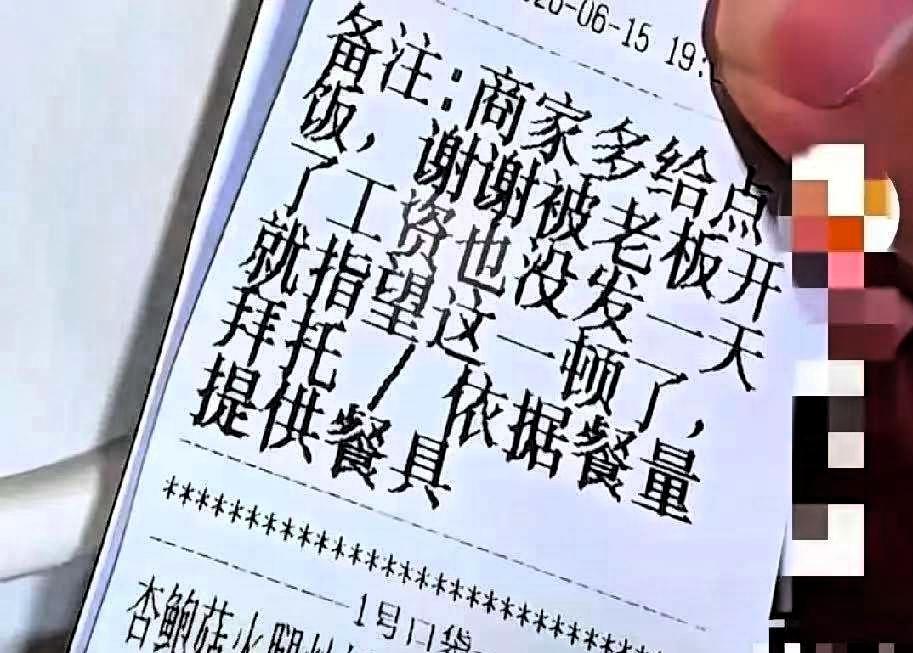 -06-15 19:
备注:商家多给点
饭,谢谢被老板开
了工资也没发一天
就指望这一顿了,
拜托/依据餐量
提供餐具
********************************
1号口袋
杏鲍菇火腿